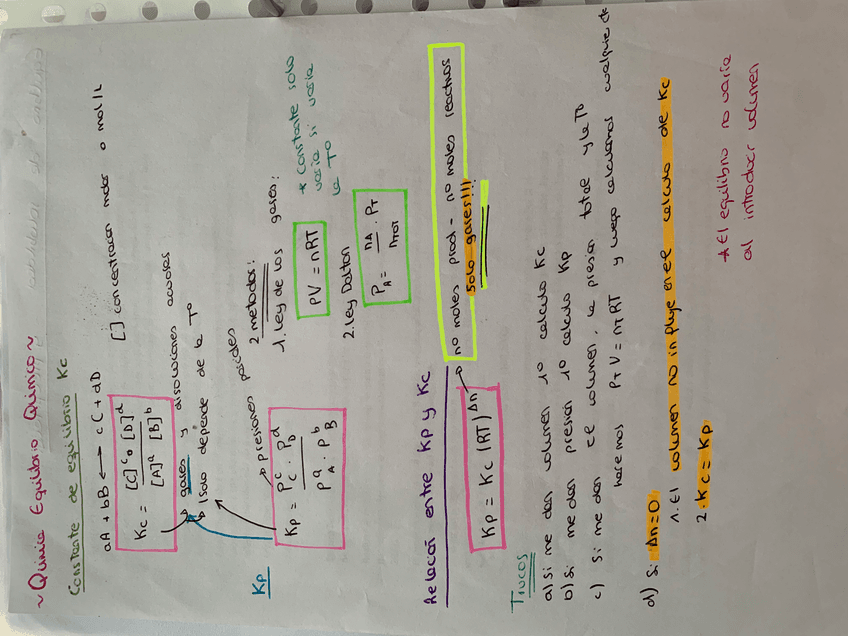 ~ Química Equilibrio Químico ~
Constante de equilibrio Kc
aA + bB ⟷ cC + dD
[ ] concentración molar o mol/L
Kc = [C]^c · [D]^d / [A]^a [B]^b
→ gases y disoluciones acuosas
→ solo depende de la Tº
Kp
→ presiones parciales
Kp = P_C^c · P_D^d / P_A^a · P_B^b
2 metodos:
1. Ley de los gases:
PV = nRT
* Constante solo
varia si varia
la Tº
2. Ley Dalton
P_A = n_A / n_TOT · P_T
Relación entre Kp y Kc
Kp = Kc (RT)^Δn
→ nº moles prod - nº moles reactivos
solo gases!!!
Trucos
a) Si me dan volumen 1º calculo Kc
b) Si me dan presion 1º calculo Kp
c) Si me dan el volumen, la presion total y la Tº
hacemos P_T V = n_T RT y luego calculamos cualquier
d) Si Δn=0
1. El volumen no influye en el calculo de Kc
2. Kc = Kp
* El equilibrio no varia
al introducir volumen